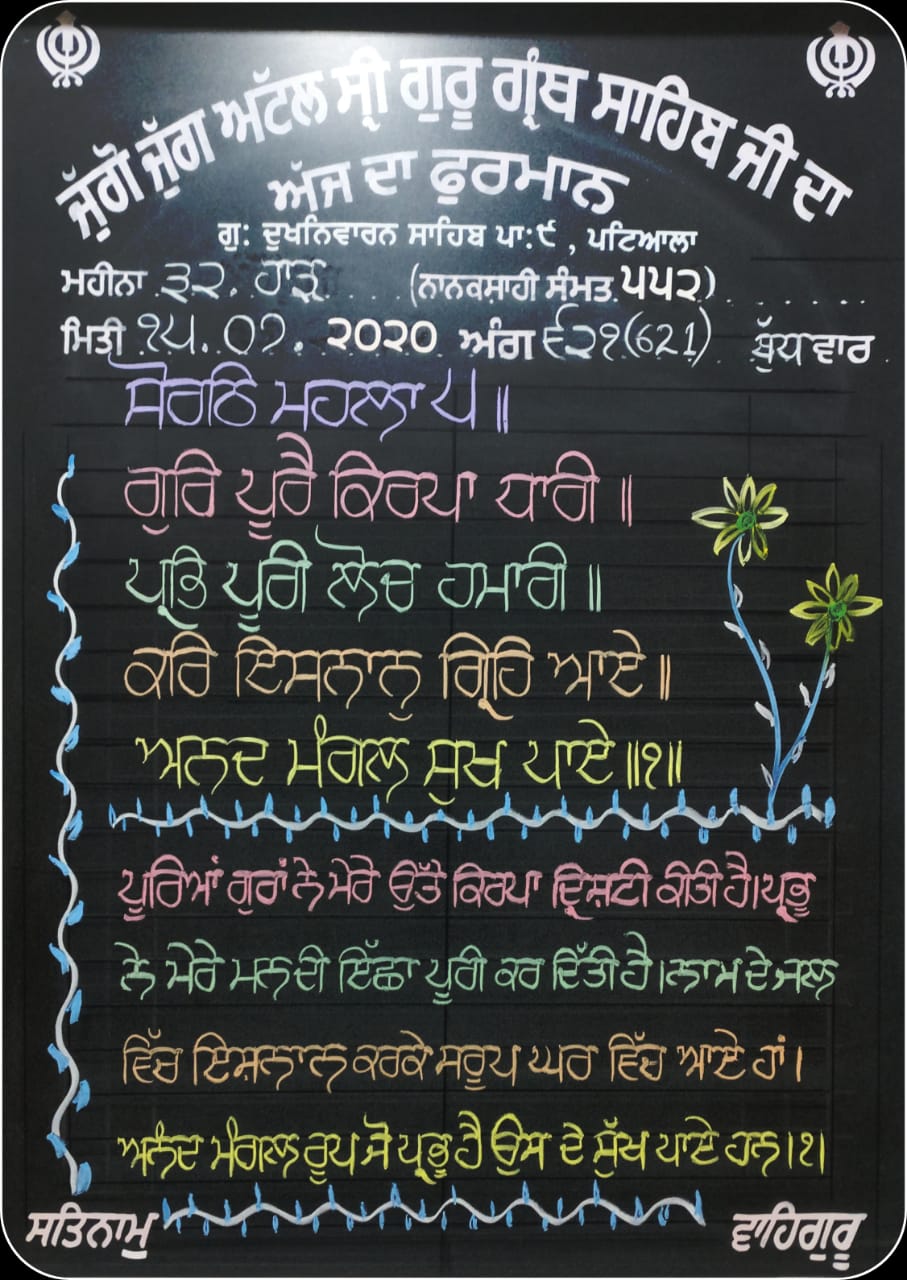 ਜੁੱਗੋ ਜੁੱਗ ਅਟੱਲ ਸ੍ਰੀ ਗੁਰੂ ਗ੍ਰੰਥ ਸਾਹਿਬ ਜੀ ਦਾ
ਅੱਜ ਦਾ ਫੁਰਮਾਨ
ਗੁ: ਦੁਖਨਿਵਾਰਨ ਸਾਹਿਬ ਪਾ:੯ , ਪਟਿਆਲਾ
ਮਹੀਨਾ ੩੨. ਹਾੜ (ਨਾਨਕਸ਼ਾਹੀ ਸੰਮਤ ੫੫੨)
ਮਿਤੀ ੧੫. ੦੭. ੨੦੨੦ ਅੰਗ ੬੨੧(621) ਬੁੱਧਵਾਰ
ਸੋਰਠਿ ਮਹਲਾ ੫ ॥
ਗੁਰਿ ਪੂਰੈ ਕਿਰਪਾ ਧਾਰੀ ॥
ਪ੍ਰਭਿ ਪੂਰੀ ਲੋਚ ਹਮਾਰੀ ॥
ਕਰਿ ਇਸਨਾਨੁ ਗ੍ਰਿਹਿ ਆਏ ॥
ਅਨਦ ਮੰਗਲ ਸੁਖ ਪਾਏ ॥੧॥
ਪੂਰਿਆਂ ਗੁਰਾਂ ਨੇ ਮੇਰੇ ਉੱਤੇ ਕਿਰਪਾ ਦ੍ਰਿਸ਼ਟੀ ਕੀਤੀ ਹੈ। ਪ੍ਰਭੂ
ਨੇ ਮੇਰੇ ਮਨ ਦੀ ਇੱਛਾ ਪੂਰੀ ਕਰ ਦਿੱਤੀ ਹੈ। ਨਾਮ ਦੇ ਜਲ
ਵਿੱਚ ਇਸ਼ਨਾਨ ਕਰਕੇ ਸਰੂਪ ਘਰ ਵਿੱਚ ਆਏ ਹਾਂ।
ਅਨੰਦ ਮੰਗਲ ਰੂਪ ਜੋ ਪ੍ਰਭੂ ਹੈ ਉਸ ਦੇ ਸੁੱਖ ਪਾਏ ਹਨ।੧।
ਸਤਿਨਾਮੁ ਵਾਹਿਗੁਰੂ